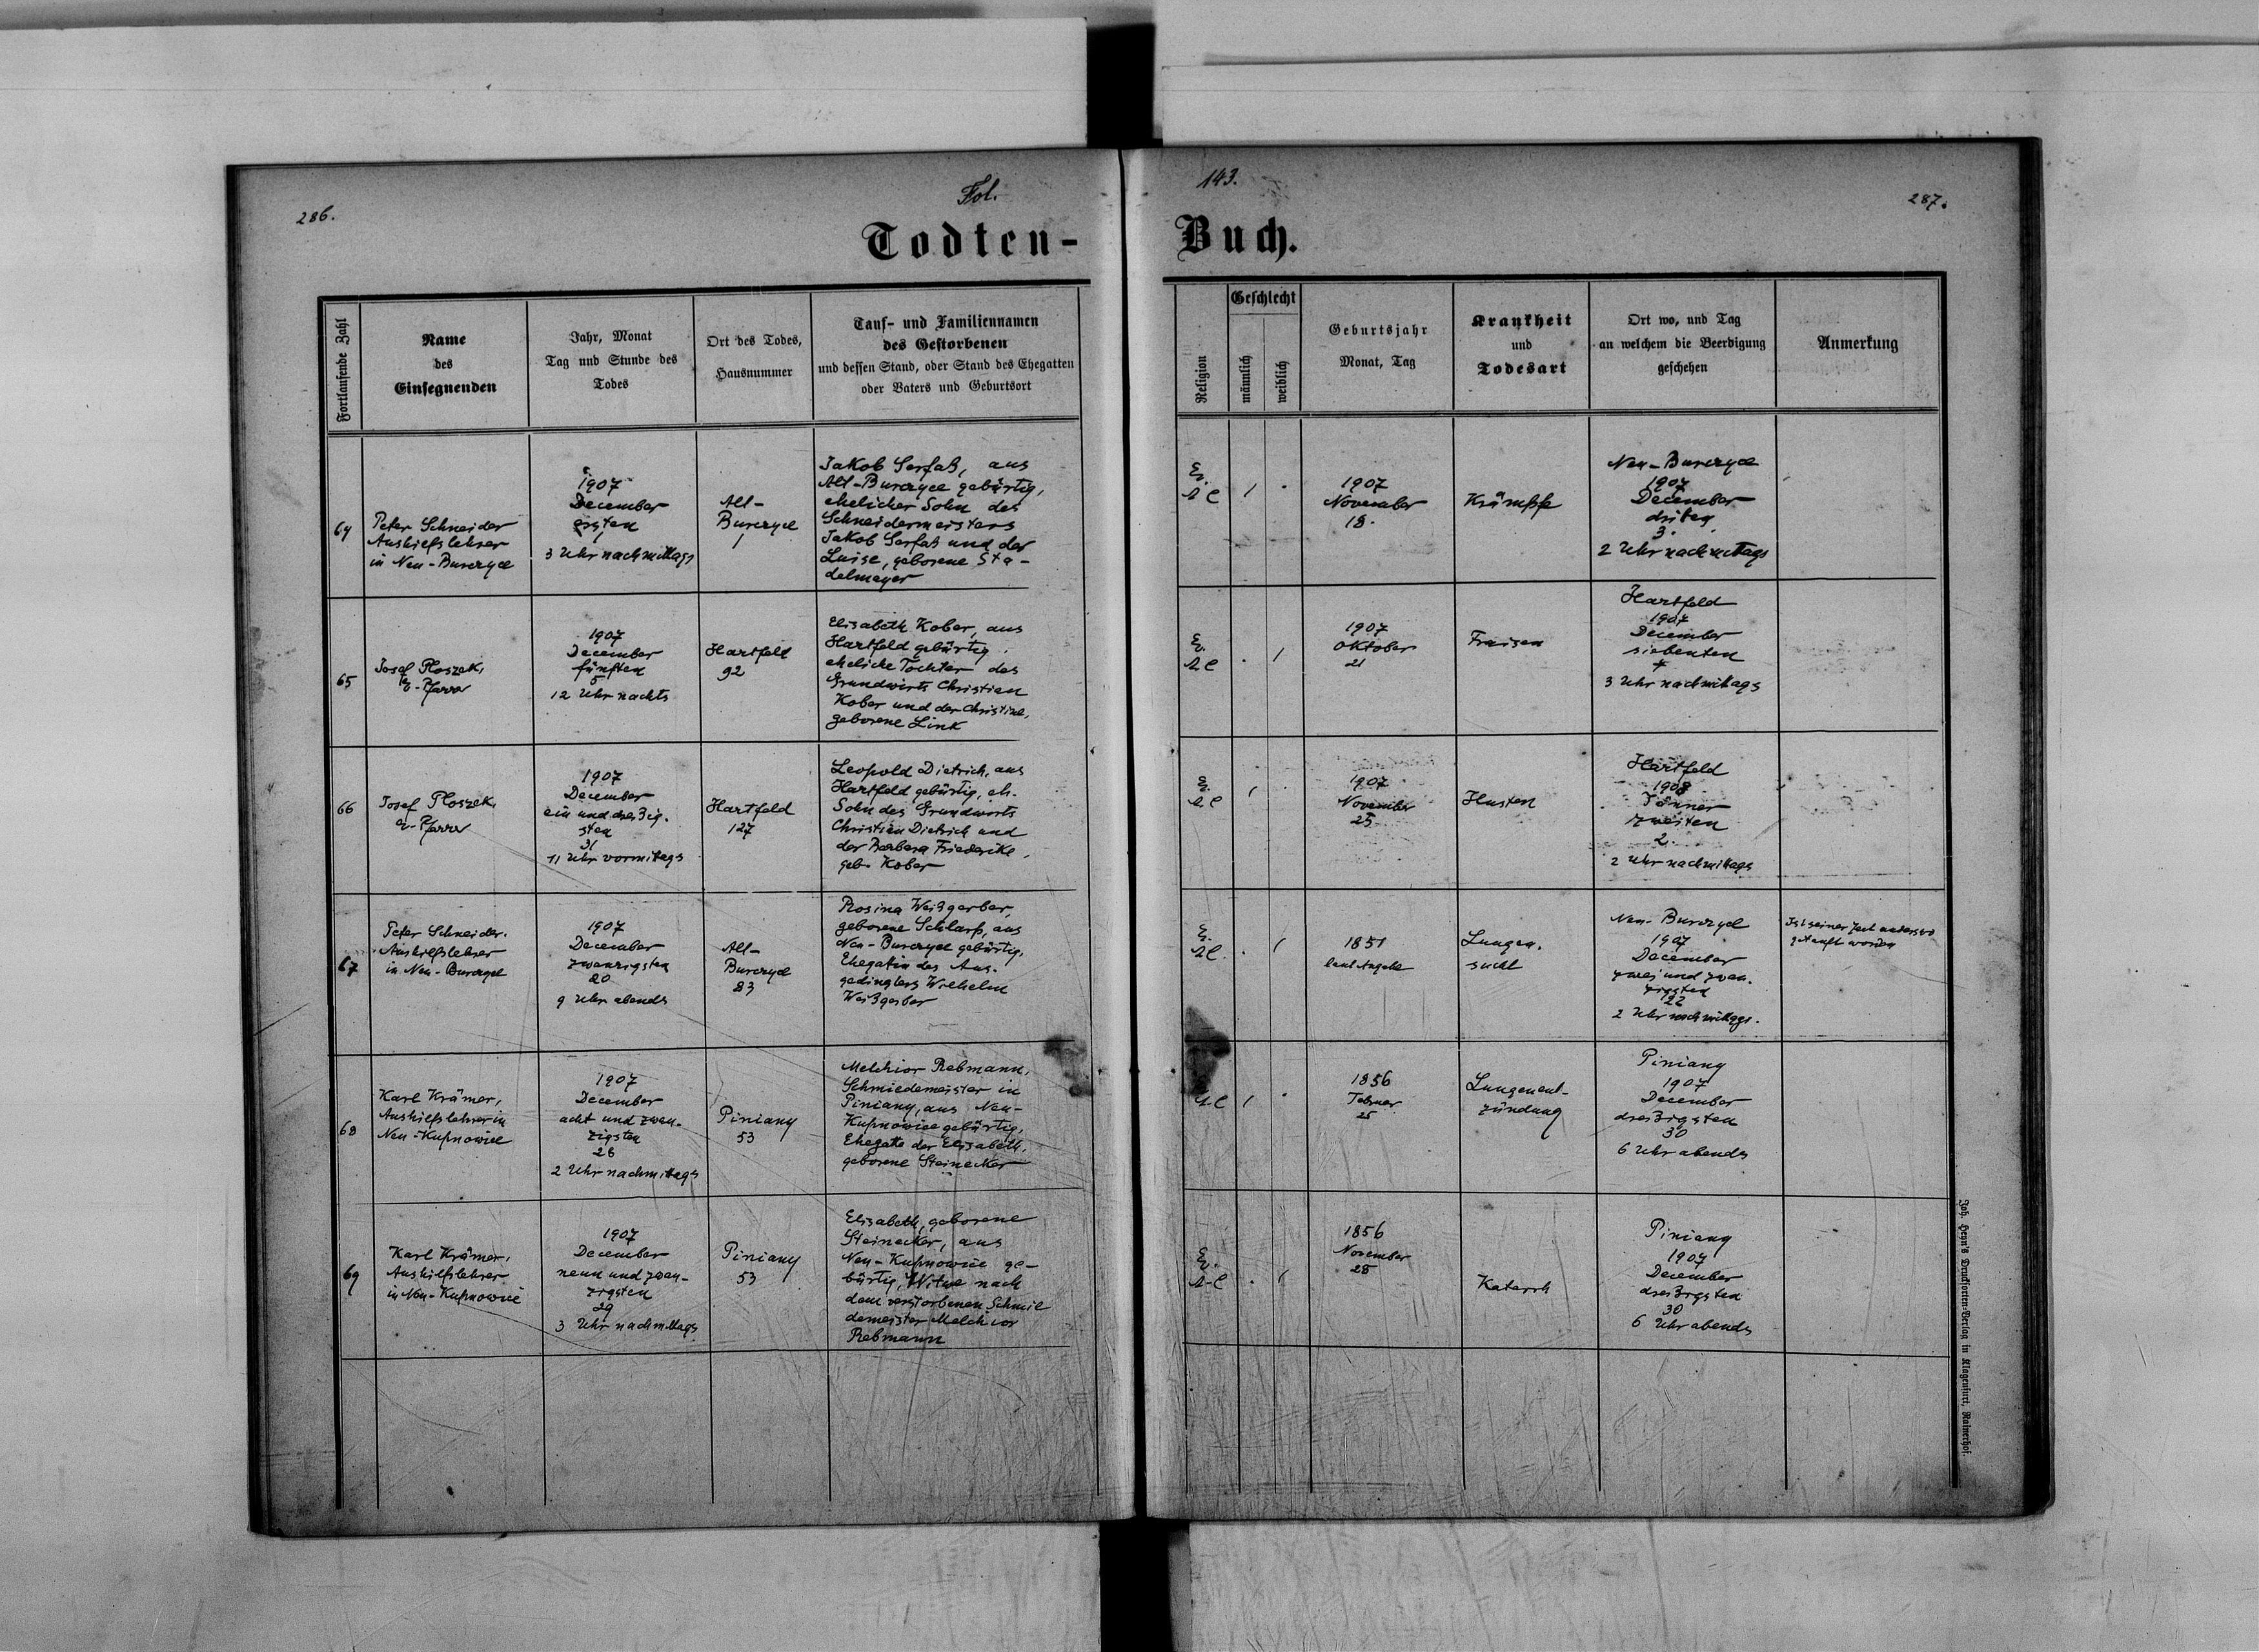 286.
Fol.
143.
287.
Todten-
Buch.
Fortlaufende Zahl
Name
des
Einsegnenden
Jahr, Monat
Tag und Stunde des
Todes
Ort des Todes,
Hausnummer
Tauf- und Familiennamen
des Gestorbenen
und dessen Stand, oder Stand des Ehegatten
oder Vaters und Geburtsort
Religion
Geschlecht
männlich
weiblich
Geburtsjahr
Monat, Tag
Krankheit
und
Todesart
Ort wo, und Tag
an welchem die Beerdigung
geschehen
Anmerkung
64
Peter Schneider
Aushilfslehrer
in Neu-Burczyce
1907
December
ersten
1
3 Uhr nachmittags
Alt-
Burczyce
1
Jakob Serfaß, aus
Alt-Burczyce gebürtig,
ehelicher Sohn des
Schneidermeisters
Jakob Serfaß und der
Luise, geborene Sta-
delmeyer
Ev.
A C
1907
November
18.
Krämpfe
Neu-Burczyce
1907
December
dritten
3.
2 Uhr nachmittags
65
Josef Ploszek,
ev-Pfarrer
1907
December
fünften
5
12 Uhr nachts
Hartfeld
92
Elisabeth Kober, aus
Hartfeld gebürtig,
eheliche Tochter des
Grundwirts Christian
Kober und der Christine,
geborene Link
Ev.
A C
1907
Oktober
21
Fraisen
Hartfeld
1907
December
siebenten
7
3 Uhr nachmittags
66
Josef Ploszek,
ev-Pfarrer
1907
December
ein und dreißig-
sten
31
11 Uhr vormittags
Hartfeld
127
Leopold Dietrich, aus
Hartfeld gebürtig, eh.
Sohn des Grundwirts
Christian Dietrich und
der Barbara Friederike,
geb. Kober
Ev.
A C
1907
November
25
Husten
Hartfeld
1908
Jänner
zweiten
2.
2 Uhr nachmittags
67
Peter Schneider.
Aushilfslehrer
in Neu-Burczyce
1907
December
zwanzigsten
20
9 Uhr abends
Alt-
Burczyce
83
Rosina Weißgerber,
geborene Schlarp, aus
Neu-Burczyce gebürtig,
Ehegatin des Aus-
gedinglers Wilhelm
Weißgerber
Ev.
A C.
1851
laut Angabe
Lungen-
sucht
Neu-Burczyce
1907
December
zwei und zwan-
zigsten
22
2 Uhr nachmittags.
Ist seiner Zeit anderswo
getauft worden
68
Karl Krämer,
Aushilfslehrer in
Neu-Kupnowice
1907
December
acht und zwan-
zigsten
28
2 Uhr nachmittags
Piniany
53
Melchior Rebmann,
Schmiedemeister in
Piniany, aus Neu-
Kupnowice gebürtig,
Ehegatte der Elisabeth,
geborene Steinecker
A C
1856
Februar
25
Lungenent-
zündung
Piniany
1907
December
dreißigsten
30
6 Uhr abends
69
Karl Krämer,
Aushilfslehrer
in Neu-Kupnowice
1907
December
neun und zwan-
zigsten
29
3 Uhr nachmittags
Piniany
53
Elisabeth, geborene
Steinecker, aus
Neu-Kupnowice ge-
bürtig, Witwe nach
dem verstorbenen Schmie
demeister Melchior
Rebmann
Ev.
A-C
1856
November
28
Katarrh
Piniany
1907
December
dreißigsten
30
6 Uhr abends
Joh. Heyn's Drucksorten-Verlag in Klagenfurt, Rainerhof.